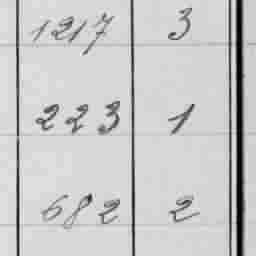 1217 3
223 1
682 2